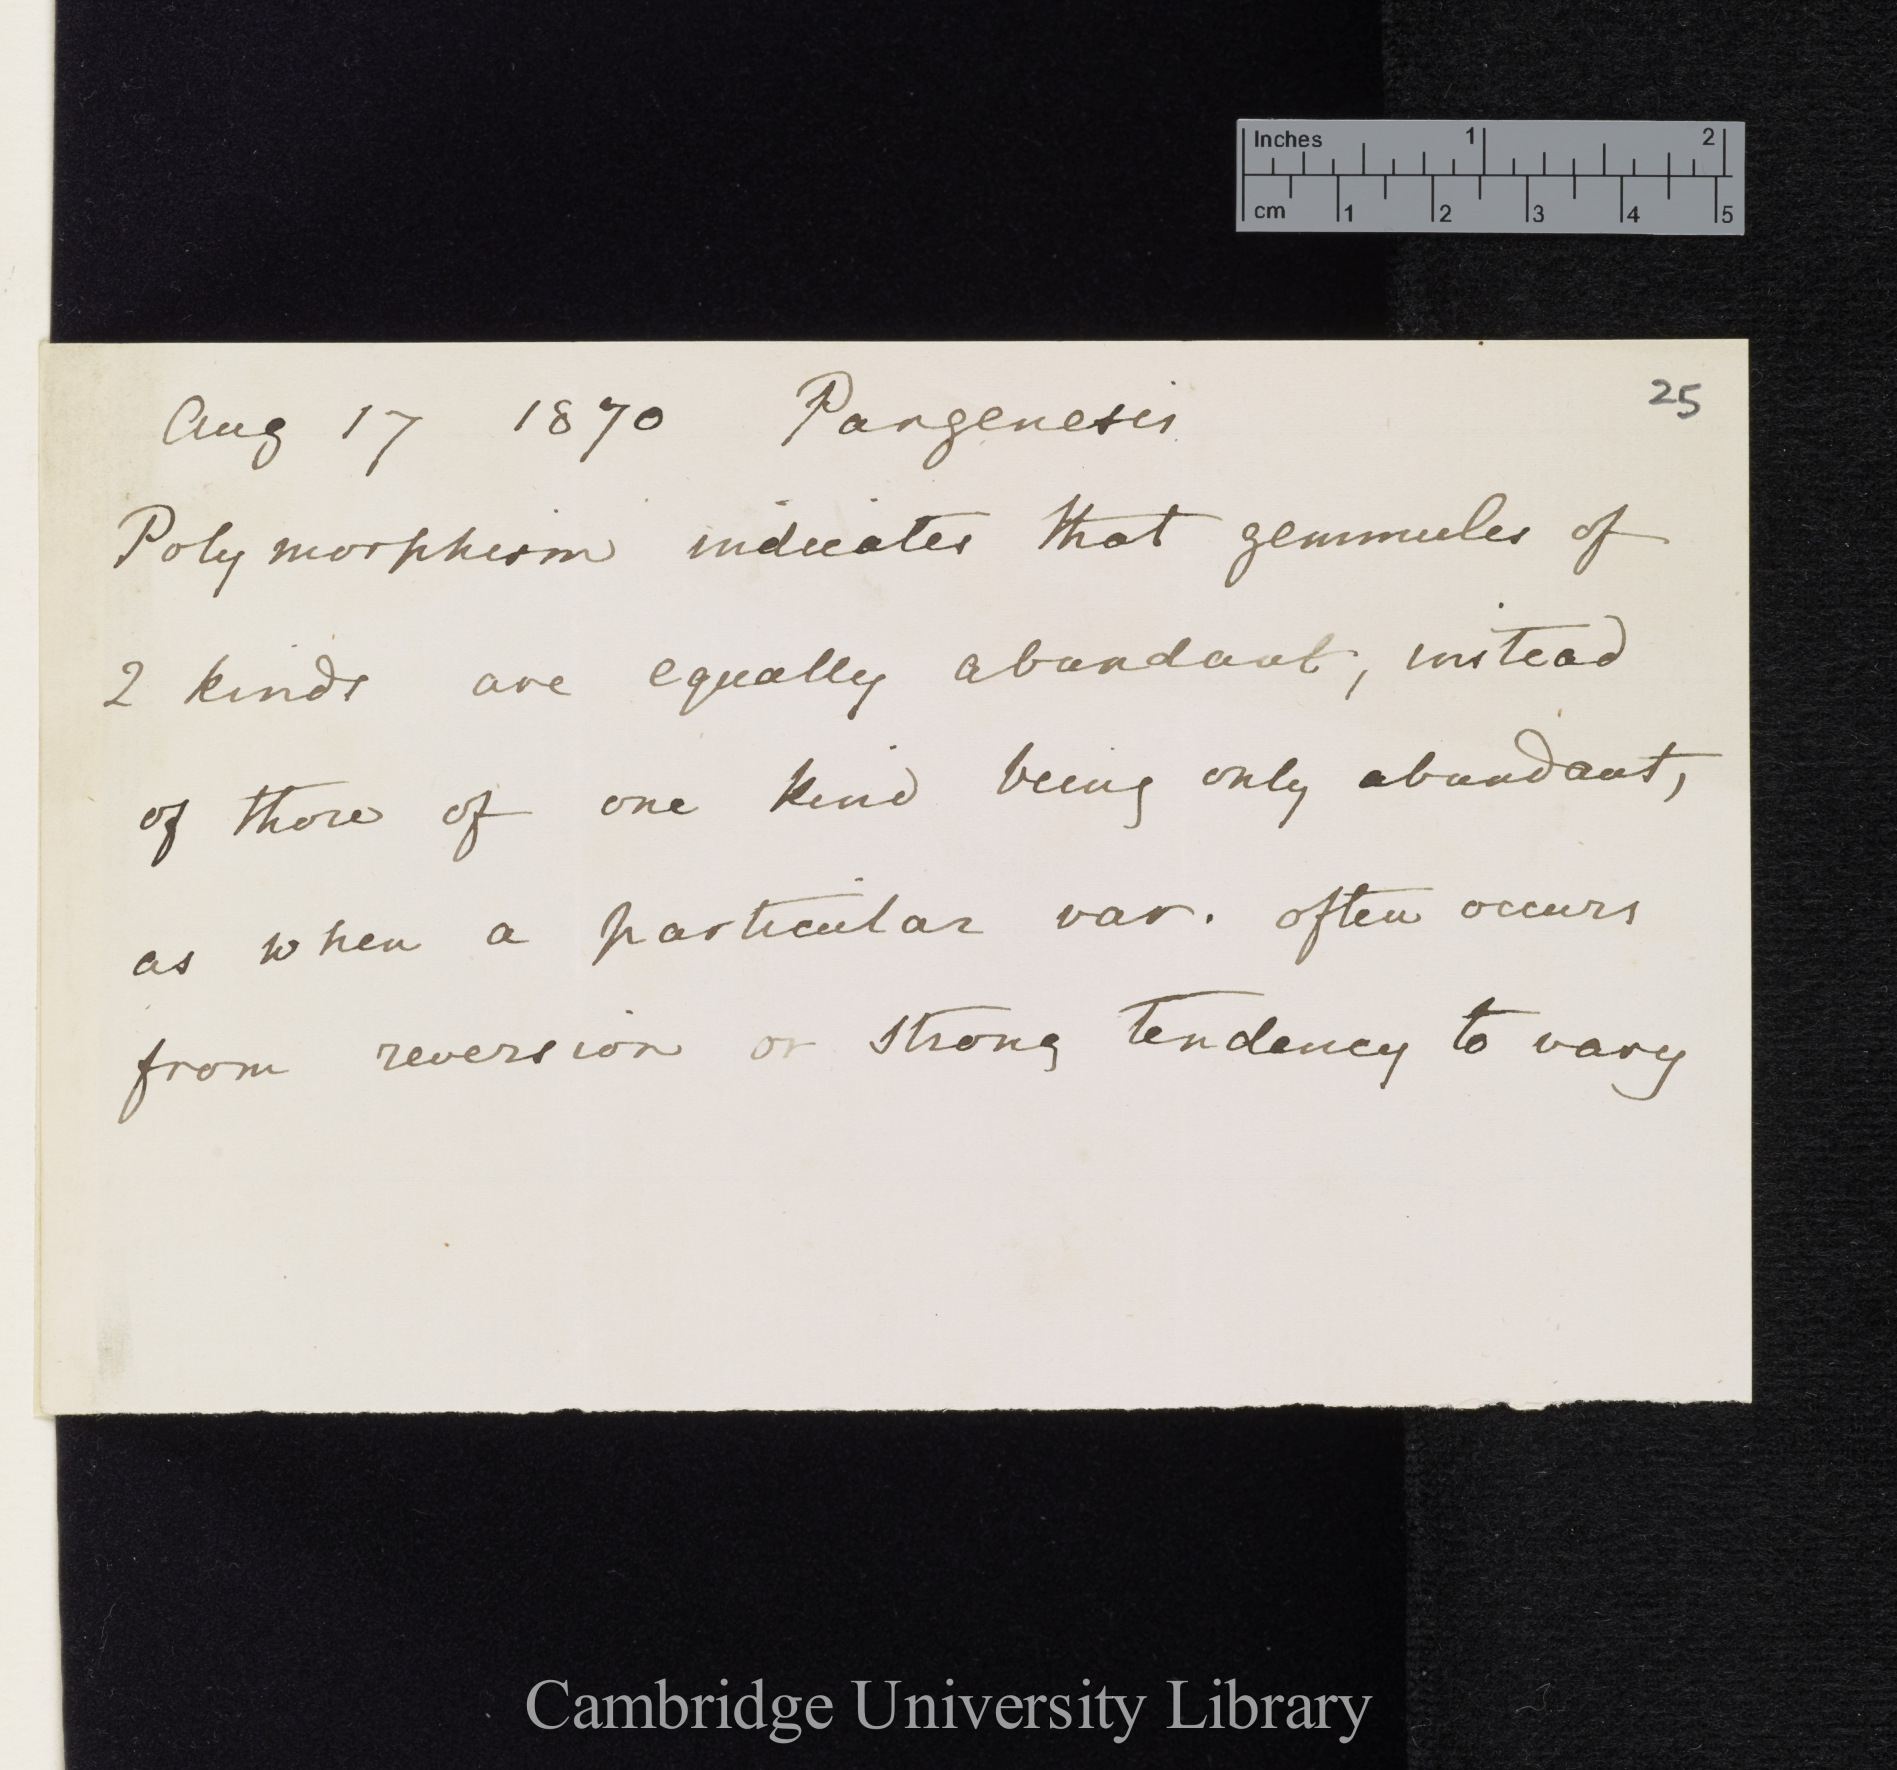 Inches 1 2
cm 1 2 3 4 5
Aug 17 1870 Pangenesis 25
Polymorphism indicates that gemmules of
2 kinds are equally abundant, instead
of those of one kind being only abundant,
as when a particular var. often occurs
from reversion or strong tendency to vary
Cambridge University Library